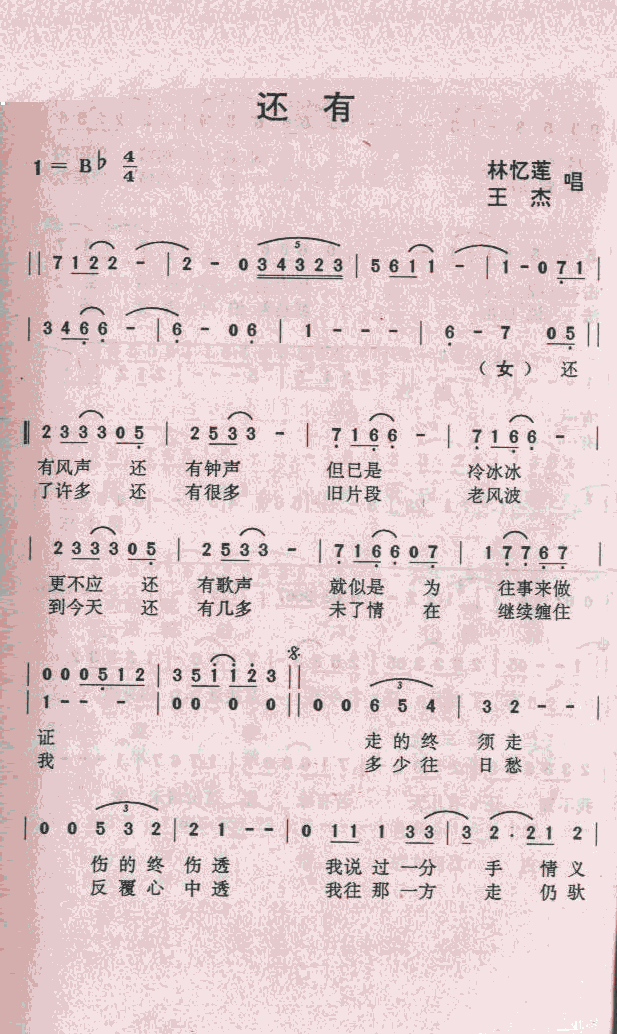 还 有
1 = B♭ 4/4
林忆莲
王 杰 唱
|| 7 1 2 2 - | 2 - 0 3 4 3 2 3 | 5 6 1 1 - | 1 - 0 7 1 |
3 4 6 6 - | 6 - 0 6 | 1 - - - | 6 - 7 0 5 ||
(女) 还
‖ 2 3 3 3 0 5 | 2 5 3 3 - | 7 1 6 6 - | 7 1 6 6 - |
有风声 还 有钟声 但已是 冷冰冰
了许多 还 有很多 旧片段 老风波
| 2 3 3 3 0 5 | 2 5 3 3 - | 7 1 6 6 0 7 | 1 7 7 6 7 |
更不应 还 有歌声 就似是 为 往事来做
到今天 还 有几多 未了情 在 继续缠住
| 0 0 0 5 1 2 | 3 5 1 1 2 3 ||
| 1 - - - | 0 0 0 0 || 0 0 6 5 4 | 3 2 - - |
证 走的终 须走
我 多少往 日愁
| 0 0 5 3 2 | 2 1 - - | 0 1 1 1 3 3 | 3 2 · 2 1 2 |
伤的终 伤透 我说过一分 手 情义
反覆心 中透 我往那一方 走 仍驮